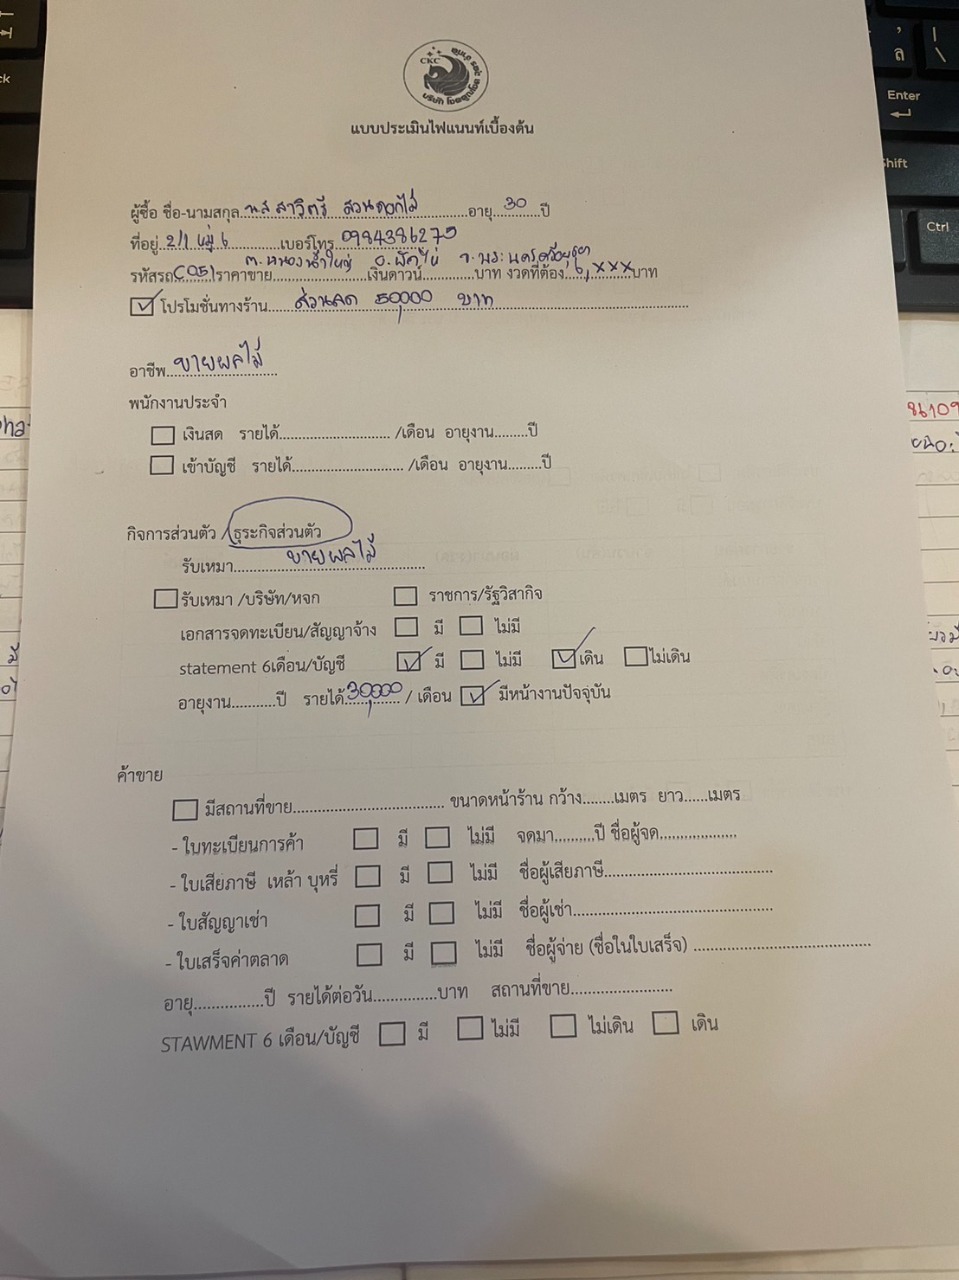 CKC
แบบประเมินไฟแนนท์เบื้องต้น
ผู้ซื้อ ชื่อ-นามสกุล..นส สาวิตรี สวนดอกไม้..........อายุ...30...ปี
ที่อยู่..2/1 หมู่ 6............เบอร์โทร..0984386275
ต.หนองน้ำใหญ่ อ.ผักไห่ จ.พระนครศรีอยุธยา
รหัสรถC051ราคาขาย.....................เงินดาวน์............บาท งวดที่ต้อง..6,xxxบาท
โปรโมชั่นทางร้าน......ส่วนลด 50,000 บาท
อาชีพ..ขายผลไม้
พนักงานประจำ
เงินสด รายได้............................ /เดือน อายุงาน.........ปี
เข้าบัญชี รายได้............................ /เดือน อายุงาน.........ปี
กิจการส่วนตัว /ธุระกิจส่วนตัว
รับเหมา............ขายผลไม้............
รับเหมา /บริษัท/หจก ราชการ/รัฐวิสากิจ
เอกสารจดทะเบียน/สัญญาจ้าง มี ไม่มี
statement 6เดือน/บัญชี มี ไม่มี เดิน ไม่เดิน
อายุงาน...........ปี รายได้.30,000. / เดือน มีหน้างานปัจจุบัน
ค้าขาย
มีสถานที่ขาย...................................... ขนาดหน้าร้าน กว้าง........เมตร ยาว......เมตร
- ใบทะเบียนการค้า มี ไม่มี จดมา..........ปี ชื่อผู้จด...................
- ใบเสียภาษี เหล้า บุหรี่ มี ไม่มี ชื่อผู้เสียภาษี..........................................
- ใบสัญญาเช่า มี ไม่มี ชื่อผู้เช่า..................................................
- ใบเสร็จค่าตลาด มี ไม่มี ชื่อผู้จ่าย (ชื่อในใบเสร็จ) ............................................
อายุ................ปี รายได้ต่อวัน..............บาท สถานที่ขาย.........................
STAWMENT 6 เดือน/บัญชี มี ไม่มี ไม่เดิน เดิน
Enter
Shift
Ctrl